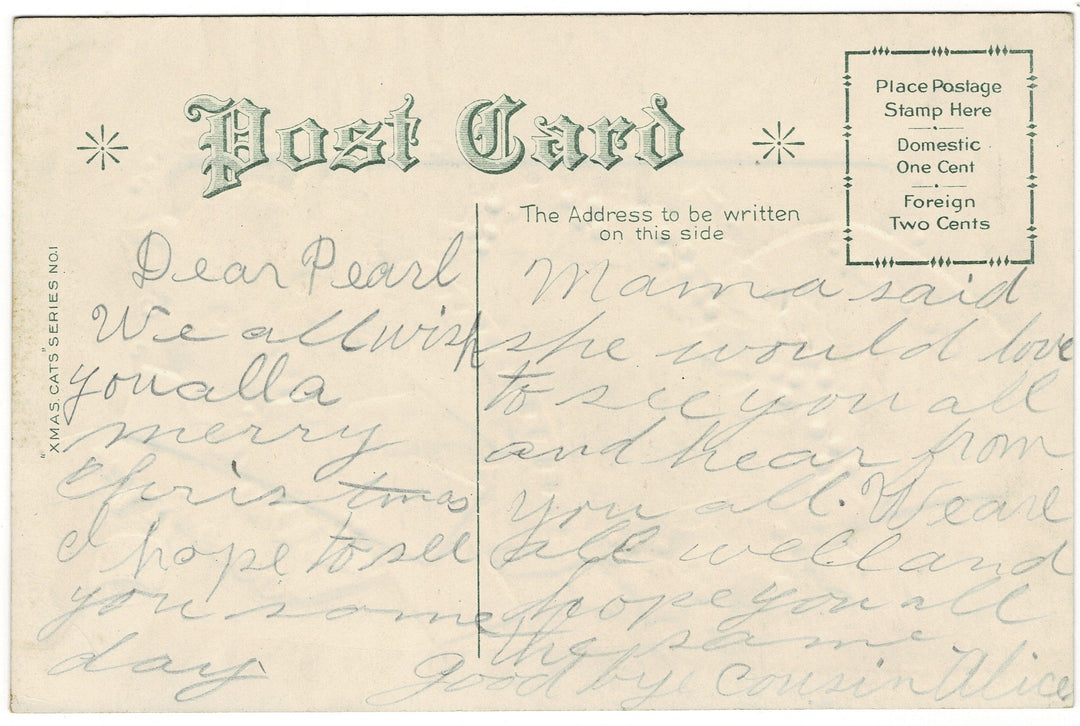 Post Card
Place Postage
Stamp Here
Domestic
One Cent
Foreign
Two Cents
The Address to be written
on this side
"XMAS. CATS" SERIES NO.1
Dear Pearl
We all wish
you all a
merry
Christmas
I hope to see
you some
day
Mama said
she would love
to see you all
and hear from
you all. We are
all well and
hope you all
the same
good bye cousin Alice